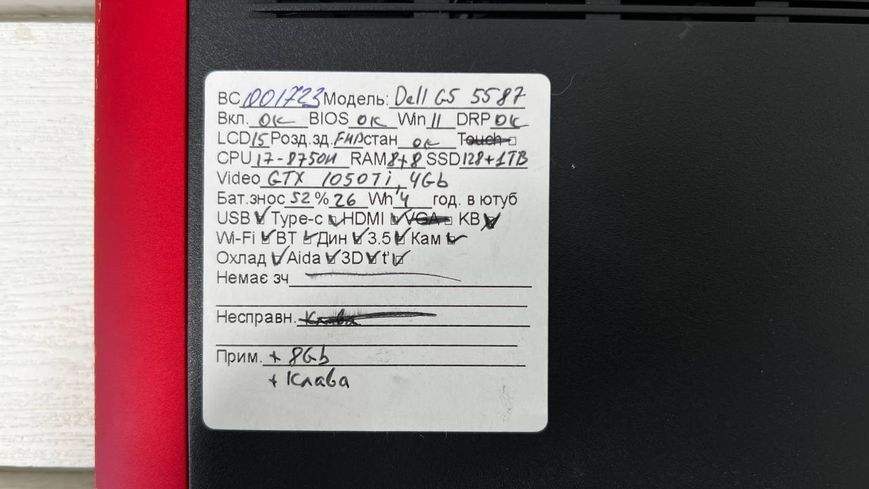 ВС 001723 Модель: Dell G5 5587
Вкл. ок BIOS ок Win 11 DRP ок
LCD 15 Розд.зд. FHD стан ок Touch
CPU i7-8750H RAM 8+8 SSD 128+1TB
Video GTX 1050Ti, 4Gb
Бат.знос 52 % 26 Wh 4 год. в ютуб
USB Type-c HDMI VGA KB
Wi-Fi BT Дин 3.5 Кам
Охлад Aida 3D t°
Немає зч
Несправн. Клава
Прим. + 8Gb
+ Клава